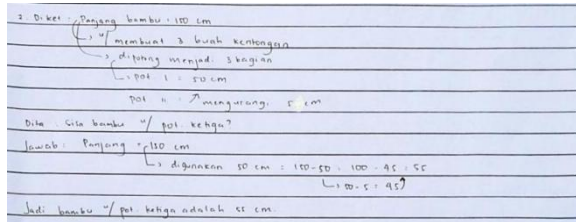 2. Diket : Panjang bambu : 150 cm
↳ u/ membuat 3 buah kentongan
→ dipotong menjadi 3 bagian
↳ pot 1 = 50 cm
pot n = ↗ mengurangi 5 cm
Dita : Sisa bambu u/ pot. ketiga?
Jawab : Panjang = 150 cm
↳ digunakan 50 cm = 150 - 50 = 100 - 45 = 55
↳ 50 - 5 = 45
Jadi bambu u/ pot. ketiga adalah 55 cm.